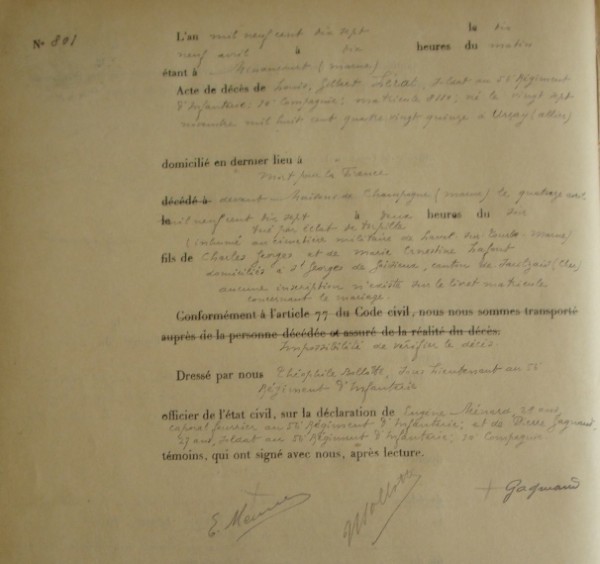 No 801
L'an mil neuf cent dix sept le dix
neuf avril à dix heures du matin
étant à (Marne)
Acte de décès de Louis, Gilbert soldat au 56 Régiment
d'Infanterie; 10e Compagnie; matricule né le vingt sept
novembre mil huit cent quatre vingt quinze à Urçay (allier)
domicilié en dernier lieu à
Mort pour la France
décédé à devant Maisons de Champagne (Marne) le quatorze avril
le mil neuf cent dix sept à deux heures du soir
Tué par éclat de torpille
(inhumé au cimetière militaire de Laval sur Tourbe - Marne)
fils de Charles Georges et de Marie Ernestine Lafont
domiciliés à St Georges de canton de (Cher)
aucune inscription n'existe sur le livret matricule
concernant le mariage.
Conformément à l'article 77 du Code civil, nous nous sommes transporté
auprès de la personne décédée et assuré de la réalité du décès;
Impossibilité de vérifier le décès.
Dressé par nous Théophile Sous Lieutenant au 56
Régiment d'Infanterie
officier de l'état civil, sur la déclaration de Eugène Ménard, ans,
caporal fourrier au 56 Régiment d'Infanterie; et de Pierre Gagnaud,
ans, soldat au 56 Régiment d'Infanterie; 10e Compagnie
témoins, qui ont signé avec nous, après lecture.
Gagnaud